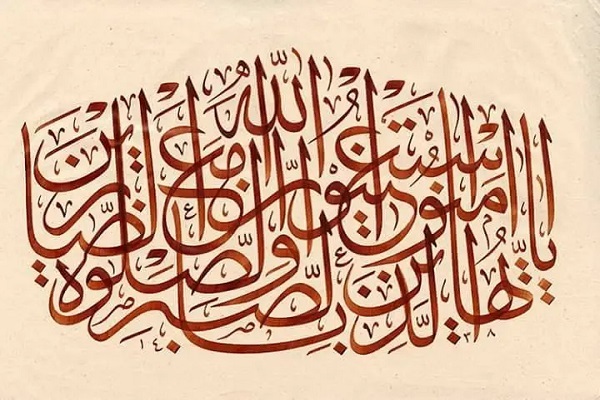 يا أيها الذين امنوا استعينوا بالصبر والصلوة ان الله مع الصابرين
١٤٣٨